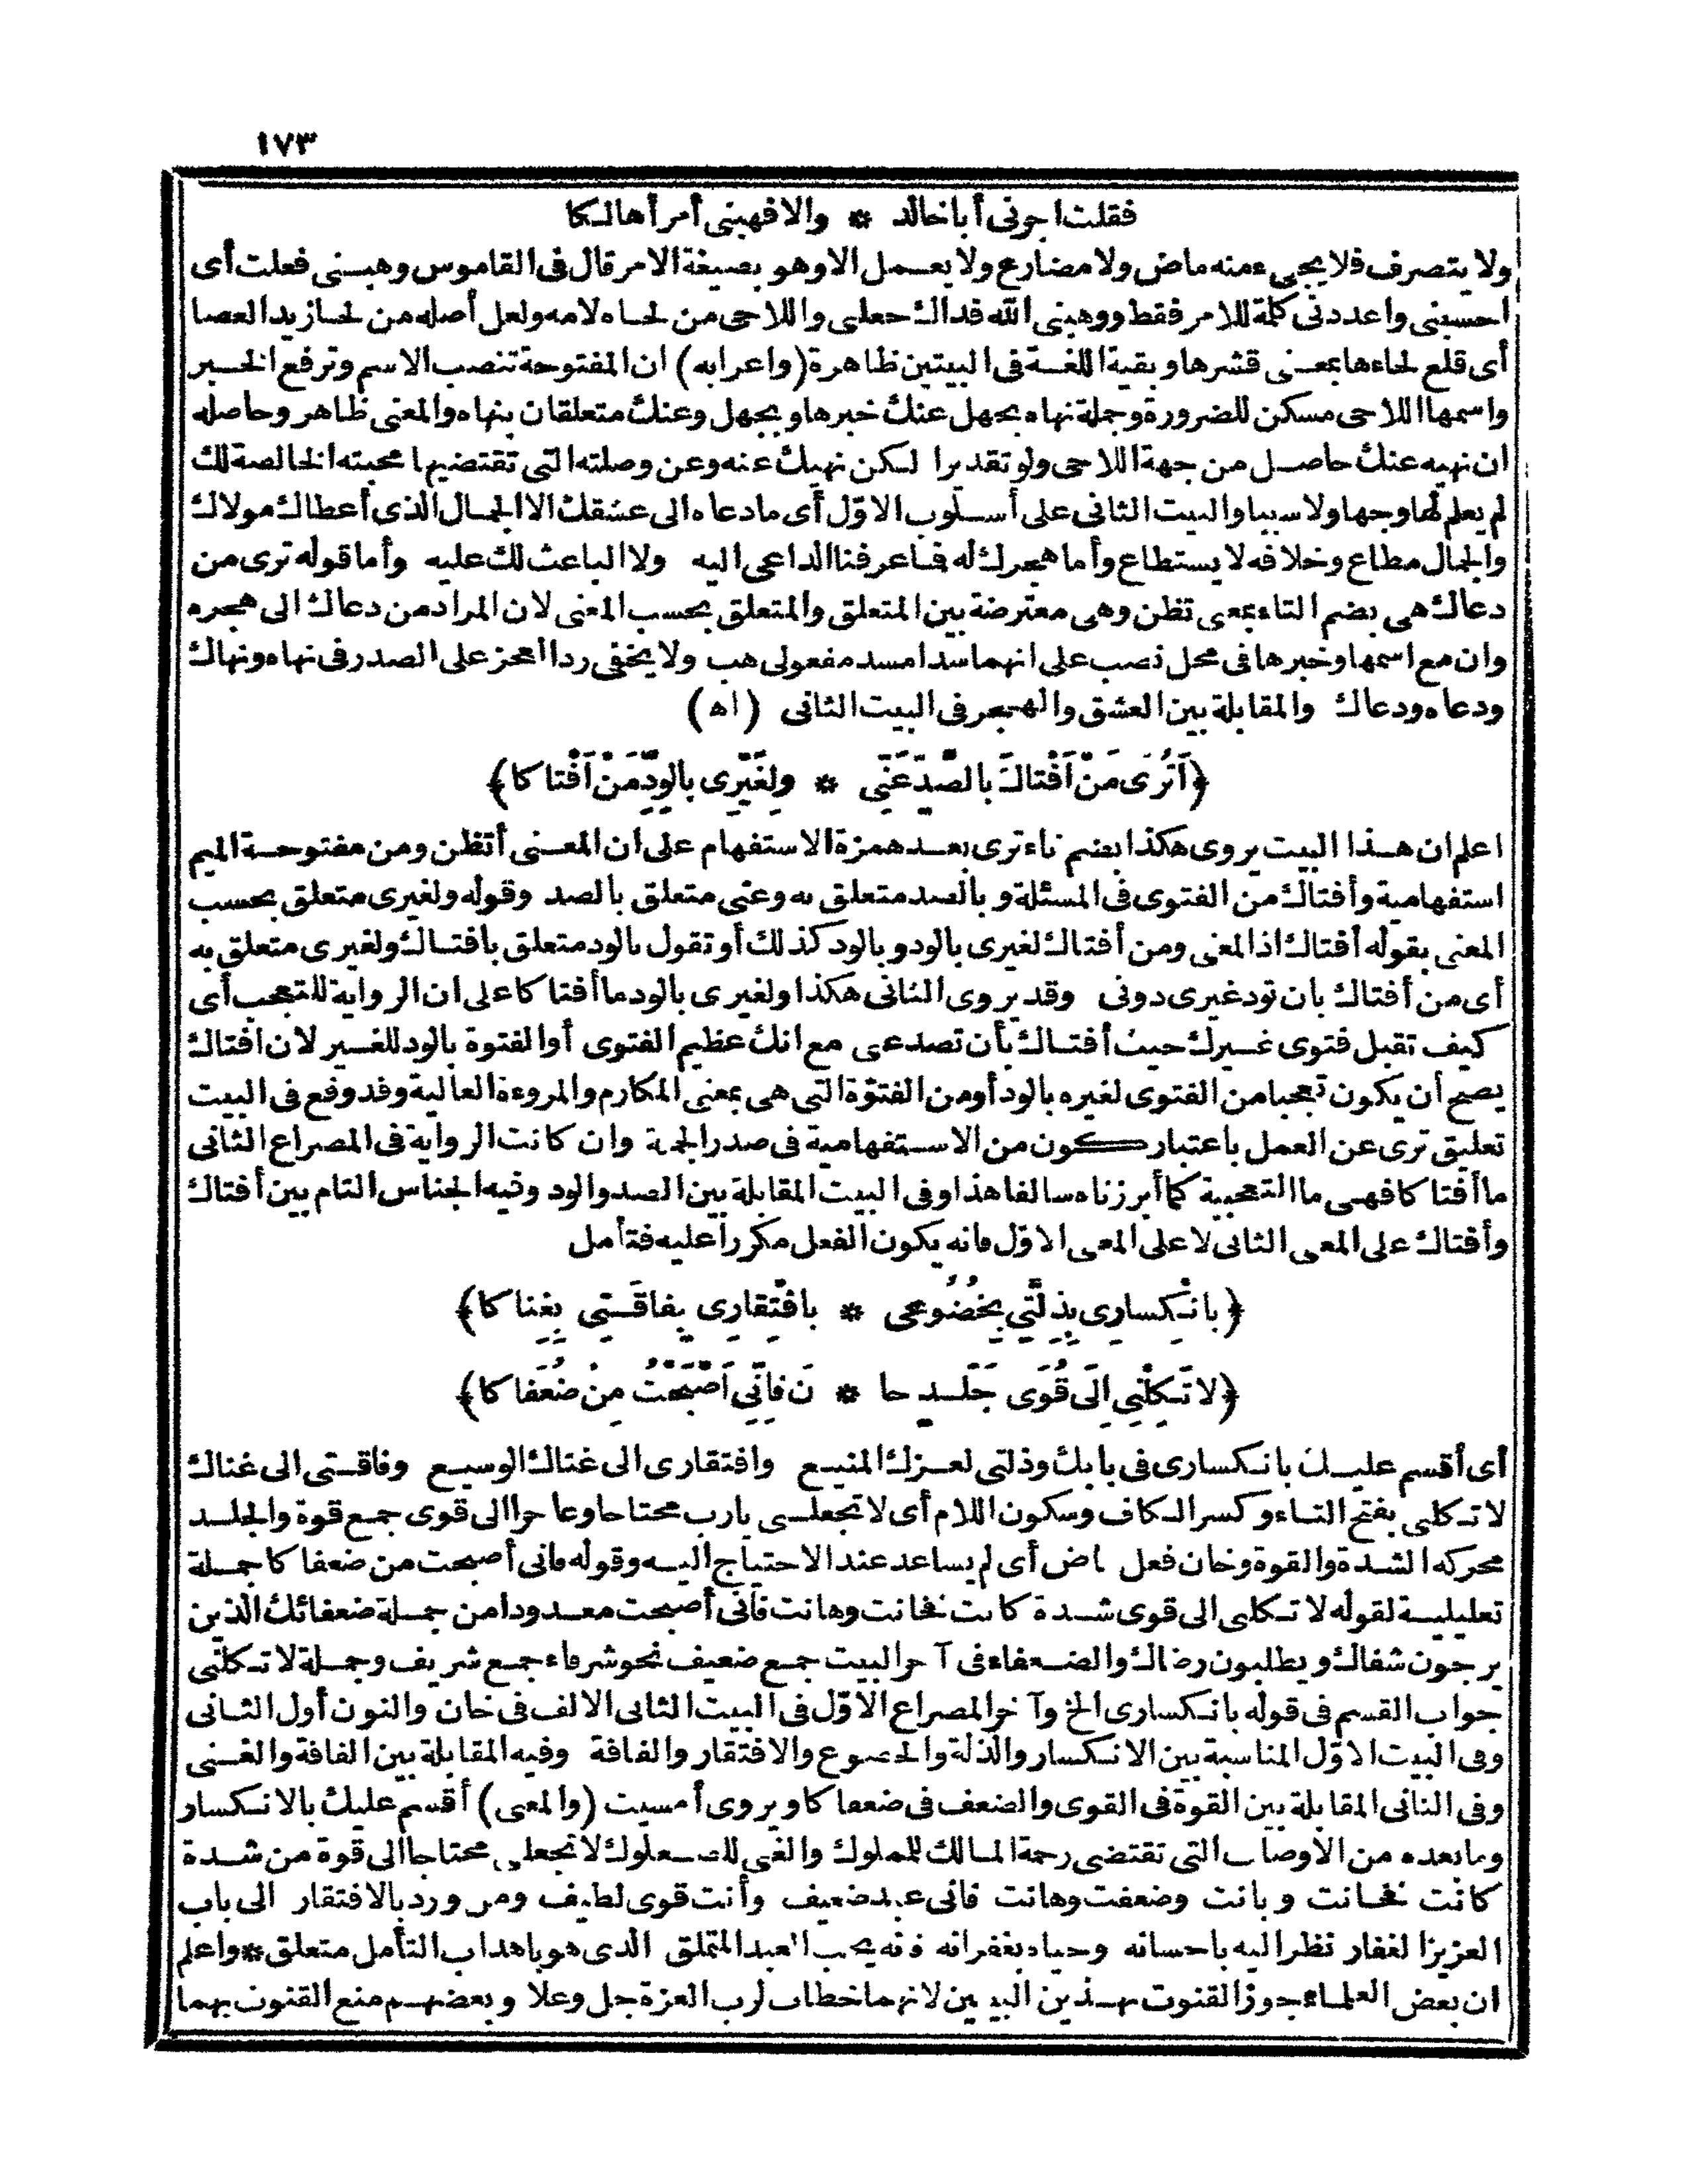 ١٧٣
فقلت اجرنى أبا خالد * والا فهبنى أمرأ هالكا
ولا يتصرف فلا يجىء منه ماض ولا مضارع ولا يعمل الا وهو بصيغة الامر قال فى القاموس وهبنى فعلت أى
احسبنى واعددنى كلمة للامر فقط ووهبنى الله فداك جعلنى واللاحى من لحاه لامه ولعل أصله من لحا زيد العصا
أى قلع لحاءها بمعنى قشرها وبقية اللغة فى البيتين ظاهرة (واعرابه) ان المفتوحة تنصب الاسم وترفع الخبر
واسمها اللاحى مسكن للضرورة وجملة نهاه بجهل عنك خبرها وبجهل وعنك متعلقان بنهاه والمعنى ظاهر وحاصله
ان نهيه عنك حاصل من جهة اللاحى ولو تقديرا لكن نهيك عنه وعن وصلته التى تقتضيها محبته الخالصة لك
لم يعلم لها وجها ولا سببا والبيت الثانى على أسلوب الاوّل أى ما دعاه الى عشقك الا الجمال الذى أعطاك مولاك
والجمال مطاع وخلافه لا يستطاع وأما هجرك له فما عرفنا الداعى اليه ولا الباعث لك عليه وأما قوله ترى من
دعاك هى بضم التاء بمعنى تظن وهى معترضة بين المتعلق والمتعلق بحسب المعنى لان المراد من دعاك الى هجره
وان مع اسمها وخبرها فى محل نصب على انهما سدا مسد مفعولى هب ولا يخفى رد العجز على الصدر فى نهاه ونهاك
ودعاه ودعاك والمقابلة بين العشق والهجر فى البيت الثانى (اه)
﴿أَتُرَى مَنْ أَفْتاكَ بالصَّدِّ عَنِّى * ولِغَيْرِى بالوِدِّ مَنْ أَفْتاكا﴾
اعلم ان هذا البيت يروى هكذا بضم تاء ترى بعد همزة الاستفهام على ان المعنى أتظن ومن مفتوحة الميم
استفهامية وأفتاك من الفتوى فى المسئلة وبالصد متعلق به وعنى متعلق بالصد وقوله ولغيرى متعلق بحسب
المعنى بقوله أفتاك اذ المعنى ومن أفتاك لغيرى بالود وبالود كذلك أو تقول بالود متعلق بافتاك ولغيرى متعلق به
أى من أفتاك بان تود غيرى دونى وقد يروى الثانى هكذا ولغيرى بالود ما أفتاكا على ان الرواية للتعجب أى
كيف تقبل فتوى غيرك حيث أفتاك بأن تصد عنى مع انك عظيم الفتوى أو الفتوة بالود للغير لان افتاك
يصح أن يكون تعجبا من الفتوى لغيره بالود أو من الفتوّة التى هى بمعنى المكارم والمروءة العالية وقد وقع فى البيت
تعليق ترى عن العمل باعتبار كون من الاستفهامية فى صدر الجملة وان كانت الرواية فى المصراع الثانى
ما أفتاكا فهى ما التعجبية كما أبرزناه سالفا هذا وفى البيت المقابلة بين الصد والود وفيه الجناس التام بين أفتاك
وأفتاك على المعنى الثانى لا على المعنى الاوّل فانه يكون الفعل مكررا عليه فتأمل
﴿بانْكِسارِى بِذِلَّتِى بِخُضُوعِى * بافْتِقارِى بِفاقَتِى بِغِناكا﴾
﴿لا تَكِلْنِى إلَى قُوَى جَلَدٍ خا * نَ فإنِّى أَصْبَحْتُ مِنْ ضُعَفاكا﴾
أى أقسم عليك بانكسارى فى بابك وذلتى لعزك المنيع وافتقارى الى غناك الوسيع وفاقتى الى غناك
لا تكلنى بفتح التاء وكسر الكاف وسكون اللام أى لا تجعلنى يا رب محتاجا وعاجزا الى قوى جمع قوة والجلد
محركه الشدة والقوة وخان فعل ماض أى لم يساعد عند الاحتياج اليه وقوله فانى أصبحت من ضعفاكا جملة
تعليلية لقوله لا تكلنى الى قوى شدة كانت فخانت وهانت فانى أصبحت معدودا من جملة ضعفائك الذين
يرجون شفاك ويطلبون رضاك والضعفاء فى آخر البيت جمع ضعيف نحو شرفاء جمع شريف وجملة لا تكلنى
جواب القسم فى قوله بانكسارى الخ وآخر المصراع الاوّل فى البيت الثانى الالف فى خان والنون أول الثانى
وفى البيت الاوّل المناسبة بين الانكسار والذلة والخضوع والافتقار والفاقة وفيه المقابلة بين الفاقة والغنى
وفى الثانى المقابلة بين القوة فى القوى والضعف فى ضعفاكا ويروى أمسيت (والمعنى) أقسم عليك بالانكسار
وما بعده من الاوصاف التى تقتضى رحمة المالك للمملوك والغنى للصعلوك لا تجعلنى محتاجا الى قوة من شدة
كانت فخانت وبانت وضعفت وهانت فانى عبد ضعيف وأنت قوى لطيف ومن ورد بالافتقار الى باب
العزيز الغفار نظر اليه باحسانه وحباه بغفرانه فانه يحب العبد المتملق الذى هو باهداب التأمل متعلق * واعلم
ان بعض العلماء جوز القنوت بهذين البيتين لانهما خطاب لرب العزة جل وعلا وبعضهم منع القنوت بهما